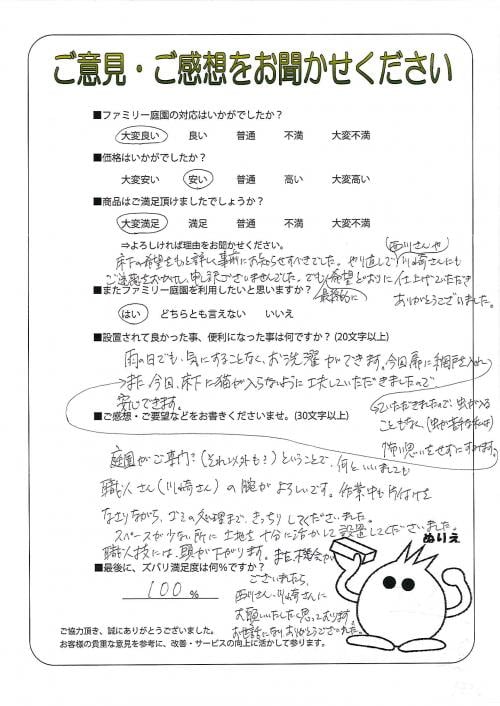 ご意見・ご感想をお聞かせください
■ファミリー庭園の対応はいかがでしたか？
大変良い 良い 普通 不満 大変不満
■価格はいかがでしたか？
大変安い 安い 普通 高い 大変高い
■商品はご満足頂けましたでしょうか？
大変満足 満足 普通 不満 大変不満
⇒よろしければ理由をお聞かせください。
床下の希望をもっと詳しく事前にお知らせすべきでした。やり直しで(西川さんや)川崎さんにも
ご迷惑をおかけし申し訳ございませんでした。でも(最終的に)希望どおりに仕上げていただき
ありがとうございました。
■またファミリー庭園を利用したいと思いますか？
はい どちらとも言えない いいえ
■設置されて良かった事、便利になった事は何ですか？(20文字以上)
雨の日でも、気にすることなく、お洗濯ができます。今回扉に網戸を入れ
ていただきましたので、虫が入る
こともなく(虫が苦手な私は)
怖い思いをせずにすみます。
また今回、床下に猫が入らないように工夫していただきましたので
安心できます。
■ご感想・ご要望などをお書きくださいませ。(30文字以上)
庭園がご専門？(それ以外も？)ということで、何といいましても
職人さん(川崎さん)の腕がよろしいです。作業中も片付けを
なさりながら、ゴミの処理まで、きっちりしてくださいました。
スペースが少ない所に土地を十分に活かして設置してくださいました。
職人技には、頭が下がります。また機会が
ございましたら、
西川さん、川崎さんに
お願いいたしたく思っております。
お世話になりありがとうございました。
■最後に、ズバリ満足度は何％ですか？
100 ％
ぬりえ
ご協力頂き、誠にありがとうございました。
お客様の貴重な意見を参考に、改善・サービスの向上に活かして参ります。